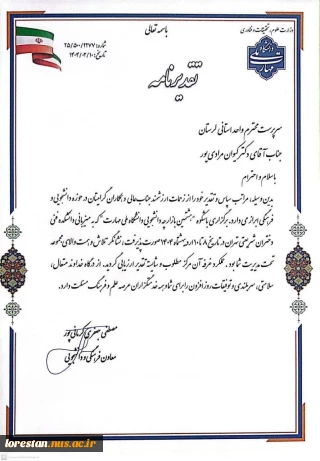 باسمه تعالی
وزارت علوم، تحقیقات و فناوری
شماره: ۲۵/۵۰۰/۲۲۷۷
تاریخ: ۱۴۰۴/۰۳/۱۰
تقدیرنامه
سرپرست محترم واحد استانی لرستان
جناب آقای دکتر کیوان مرادی پور
با سلام و احترام
بدین وسیله، مراتب سپاس و تقدیر خود را از زحمات ارزشمند جناب عالی و همکاران گرامیتان در حوزه دانشجویی و
فرهنگی ابراز می دارد. برگزاری باشکوه "هشتمین بازارچه دانشجویی دانشگاه ملی مهارت" که به میزبانی دانشکده فنی
دختران شریعتی تهران در تاریخ ۸ تا ۱۰ اردیبهشت ماه ۱۴۰۴ صورت پذیرفت، نشانگر تلاش و همت والای مجموعه
تحت مدیریت شما بود. عملکرد غرفه آن مرکز مطلوب و شایسته تقدیر ارزیابی گردید. از درگاه خداوند متعال،
سلامتی، سربلندی و توفیقات روزافزون را برای شما و همه خدمتگزاران عرصه علم و فرهنگ مسئلت دارد.
مصطفی جعفری کرمانی پور
معاون فرهنگی و دانشجویی
lorestan.nus.ac.ir